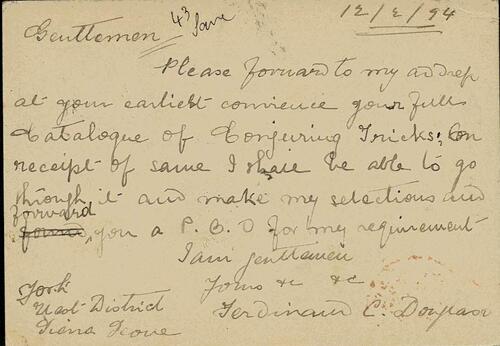 43
12/2/94
Gentlemen
Please forward to my address
at your earliest convience your full
Catalogue of Conjuring Tricks; On
receipt of same I shall be able to go
through it and make my selections and
forward
you a P. O. O for my requirement
I am gentlemen
Yours &c &c
York
West District
Sierra Leone
Ferdinand C.